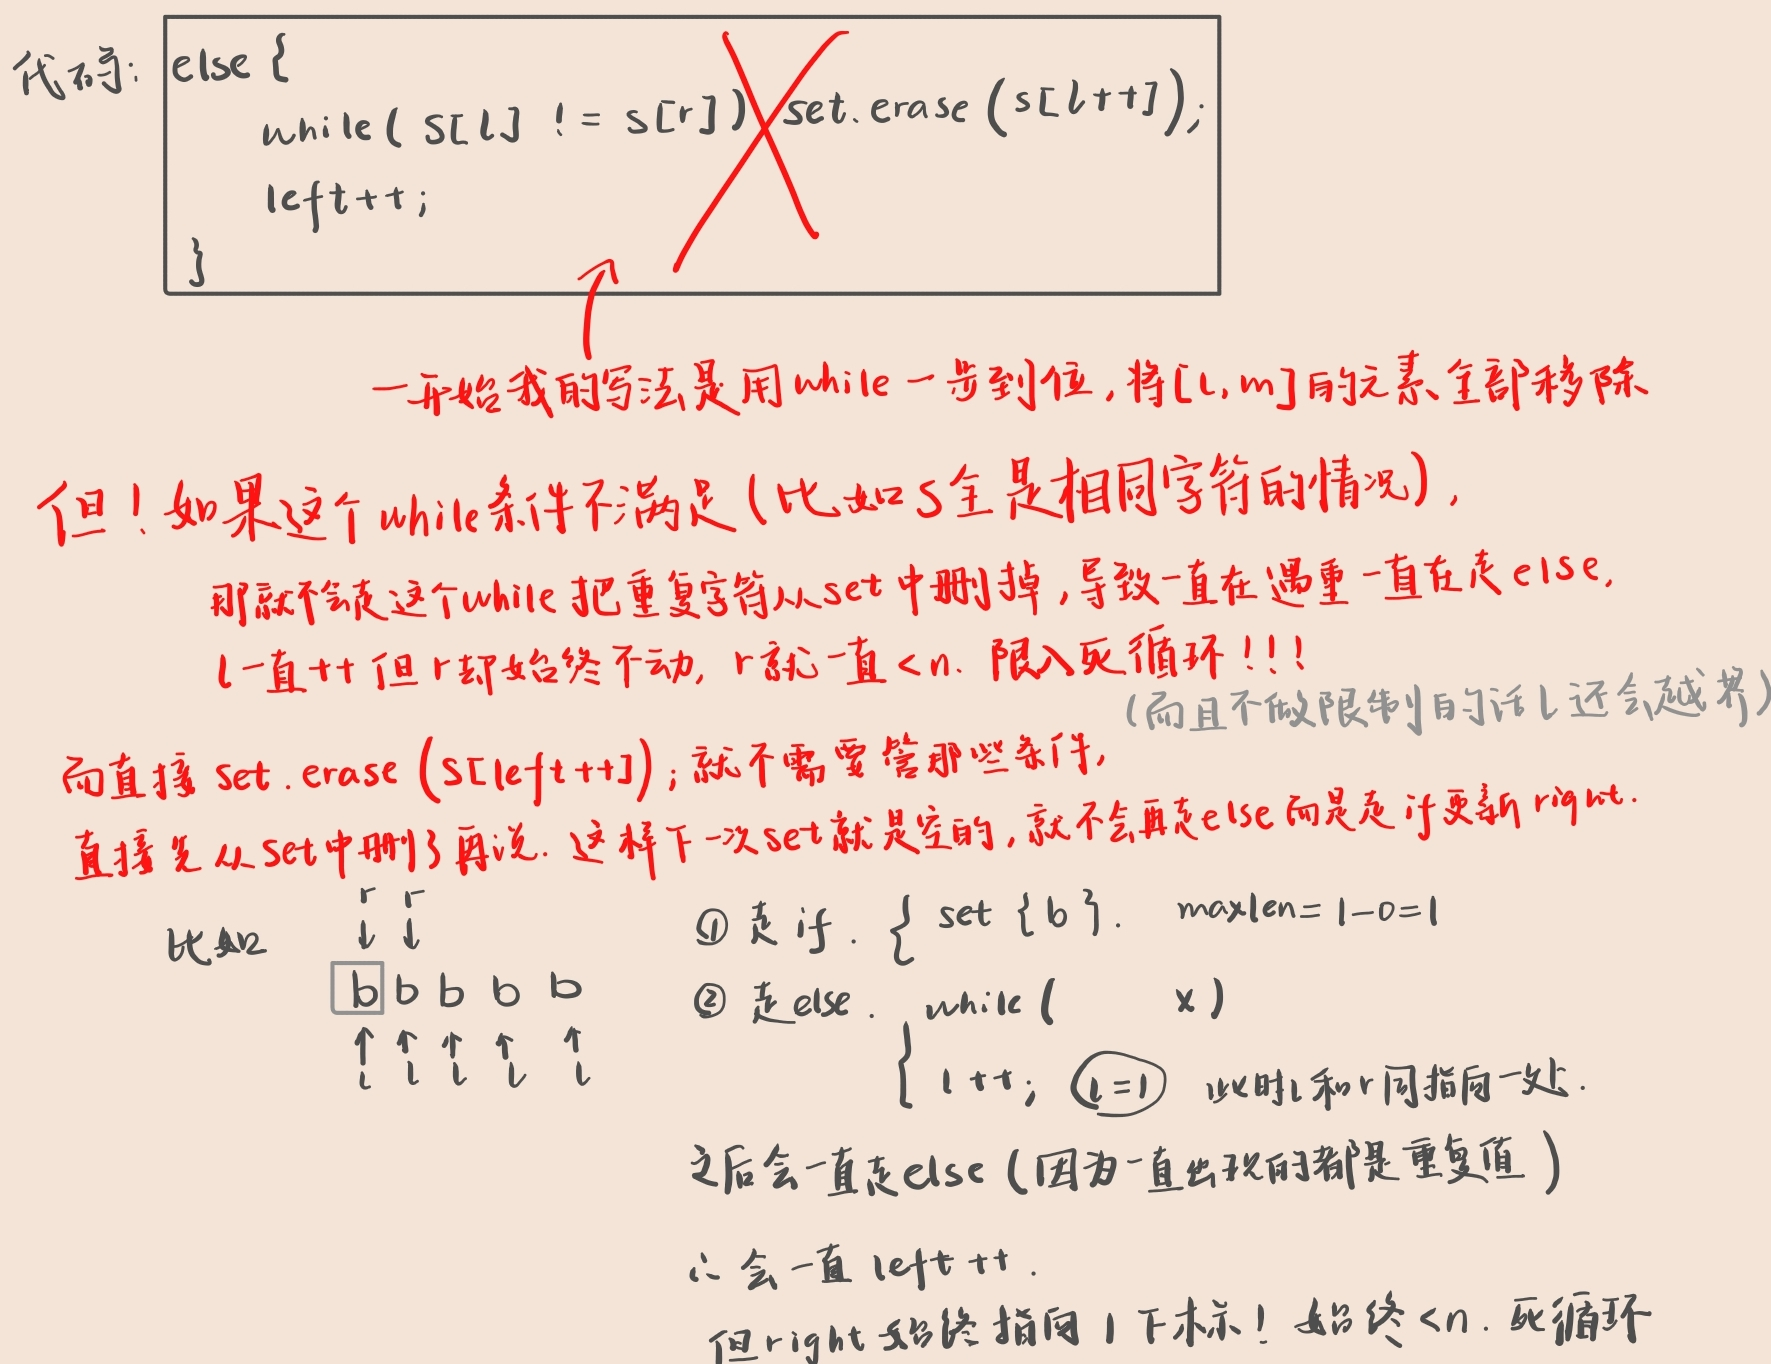 代码: else {
while( s[l] != s[r]) set.erase (s[l++]);
left++;
}
一开始我的写法是用while一步到位,将[l,m]的元素全部移除
但!如果这个while条件不满足(比如s全是相同字符的情况),
那就不会走这个while把重复字符从set中删掉,导致一直在遇重一直在走else,
l一直++但r却始终不动, r就一直<n. 限入死循环!!!
(而且不做限制的话l还会越界)
而直接 set.erase (s[left++]);就不需要管那些条件,
直接先从set中删了再说. 这样下一次set就是空的,就不会再走else而是走if更新right.
比如
r r
↓ ↓
b b b b b
↑ ↑ ↑ ↑ ↑
l l l l l
① 走if. { set {b}. maxlen=1-0=1
② 走else. while( x)
{ l++; l=1 此时l和r同指向一处.
之后会一直走else (因为一直出现的都是重复值)
∴会一直left++.
但right始终指向1下标! 始终<n. 死循环